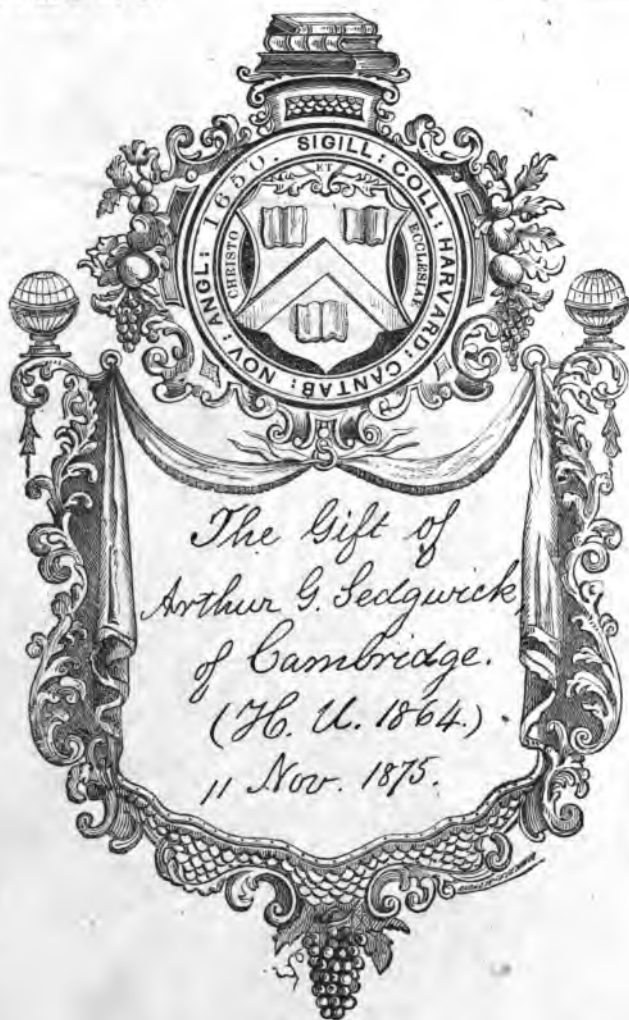 SIGILL: COLL: HARVARD: CANTAB: NOV: ANGL: 1650.
CHRISTO
ET
ECCLESIAE
The Gift of
Arthur G. Sedgwick,
of Cambridge.
(H. U. 1864.)
11 Nov. 1875.